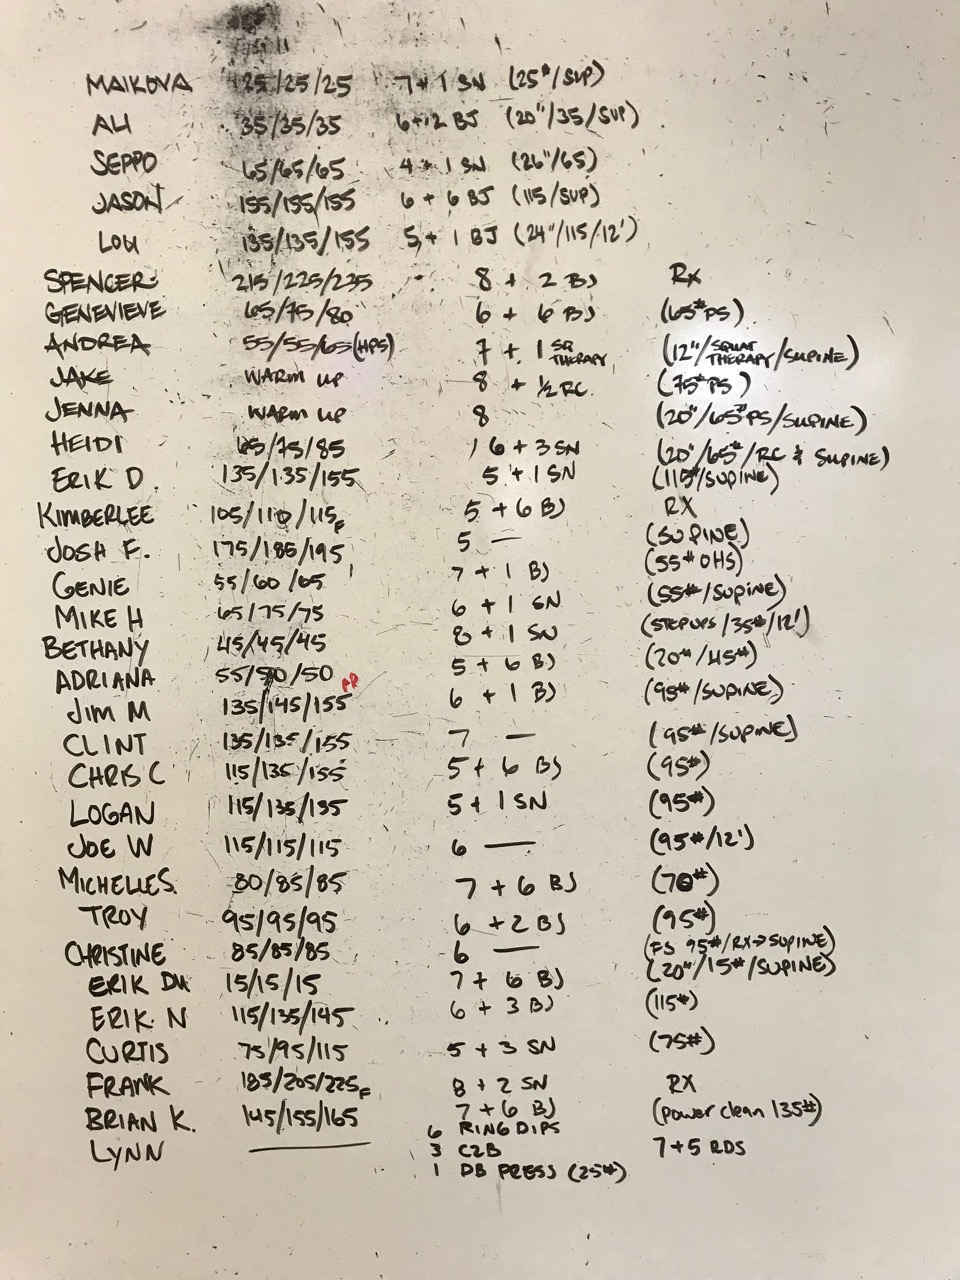 MAIKOVA 25/25/25 7+1 SN (25#/SUP)
ALI 35/35/35 6+12 BJ (20"/35/SUP)
SEPPO 65/65/65 4+1 SN (26"/65)
JASON 155/155/155 6+6 BJ (115/SUP)
LOU 135/135/155 5+1 BJ (24"/115/12')
SPENCER 215/225/235 8+2 BJ Rx
GENEVIEVE 65/75/80 6+6 BJ (65# PS)
ANDREA 55/55/65(HPS) 7+1 SQ THERAPY (12"/SQUAT THERAPY/SUPINE)
JAKE WARM UP 8+½ RC (75# PS)
JENNA WARM UP 8 (20"/65# PS/SUPINE)
HEIDI 65/75/85 6+3 SN (20"/65#/RC & SUPINE)
ERIK D. 135/135/155 5+1 SN (115#/SUPINE)
KIMBERLEE 105/110/115F 5+6 BJ RX
JOSH F. 175/185/195 5 — (SUPINE)
GENIE 55/60/65 7+1 BJ (55# OHS)
MIKE H 65/75/75 6+1 SN (55#/SUPINE)
BETHANY 45/45/45 8+1 SN (STEPUPS/35#/12')
ADRIANA 55/50/50 5+6 BJ (20"/45#)
JIM M 135/145/155 PR 6+1 BJ (95#/SUPINE)
CLINT 135/135/155 7 — (95#/SUPINE)
CHRIS C 115/135/155 5+6 BJ (95#)
LOGAN 115/135/135 5+1 SN (95#)
JOE W 115/115/115 6 — (95#/12')
MICHELLE S. 80/85/85 7+6 BJ (70#)
TROY 95/95/95 6+2 BJ (95#)
CHRISTINE 85/85/85 6 — (FS 95#/RX→SUPINE)
ERIK DU 15/15/15 7+6 BJ (20"/15#/SUPINE)
ERIK N 115/135/145 6+3 BJ (115#)
CURTIS 75/95/115 5+3 SN (75#)
FRANK 185/205/225F 8+2 SN RX
BRIAN K. 145/155/165 7+6 BJ (power clean 135#)
LYNN — 6 RING DIPS
3 C2B 7+5 RDS
1 DB PRESS (25#)